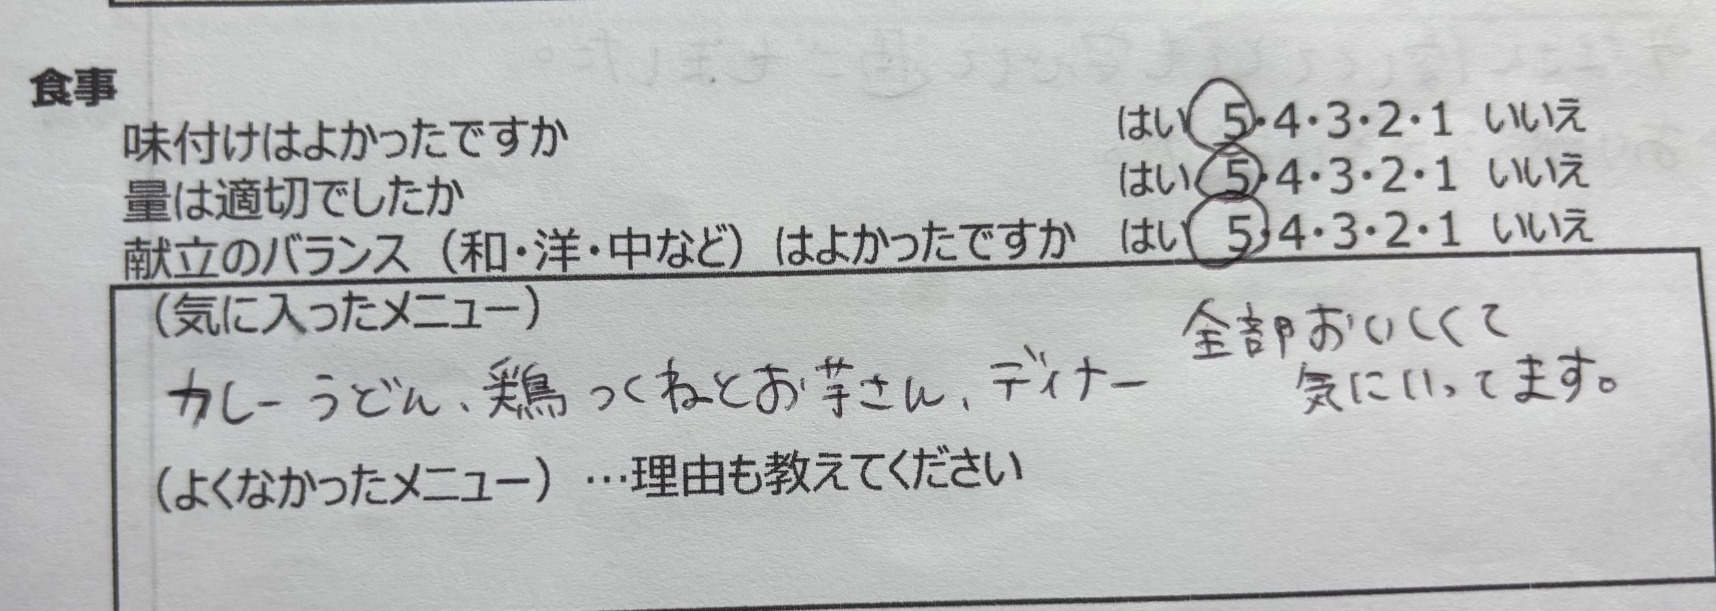 食事
味付けはよかったですか はい 5・4・3・2・1 いいえ
量は適切でしたか はい 5・4・3・2・1 いいえ
献立のバランス（和・洋・中など）はよかったですか はい 5・4・3・2・1 いいえ
（気に入ったメニュー）
カレーうどん、鶏つくねとお芋さん、ディナー
全部おいしくて
気にいってます。
（よくなかったメニュー）…理由も教えてください